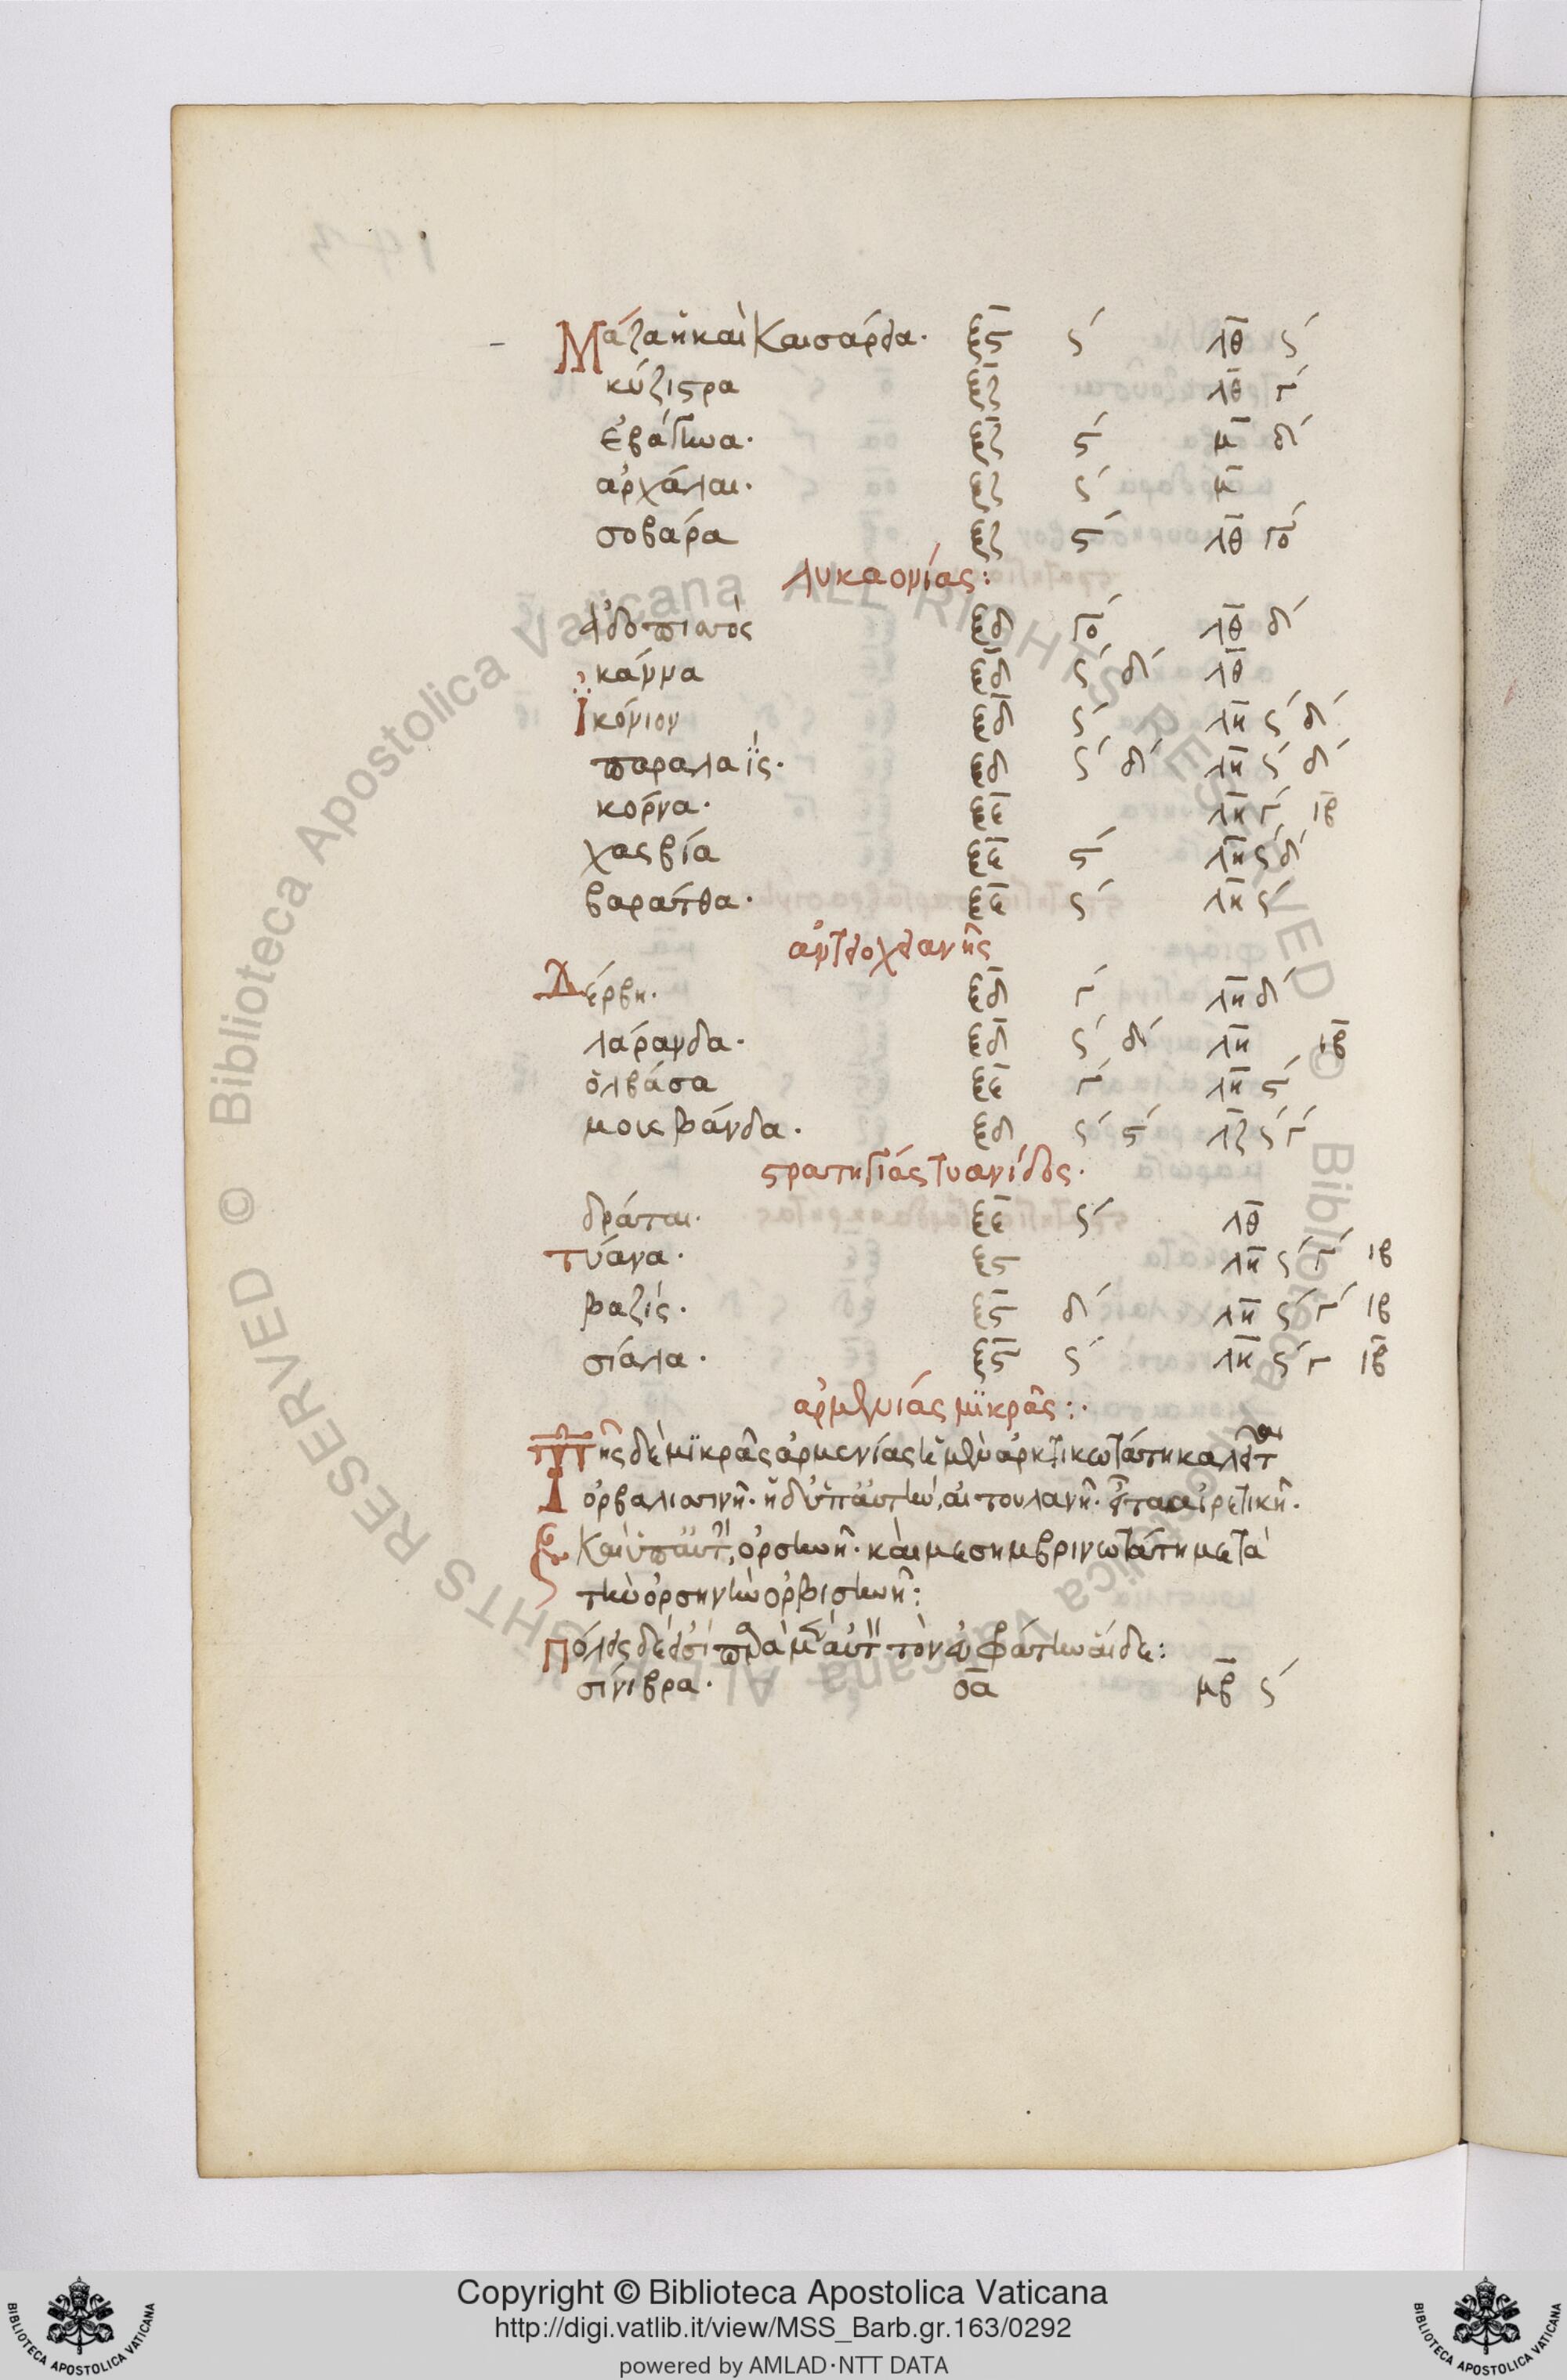 Μάζα ἡ καὶ Καισάρεια· ξϛ ϛ´ λθ ϛ´
κύζιστρα ξζ λθ γ´
ἐβάγηνα· ξζ ϛ´ μ δ´
ἀρχάλαι· ξζ ϛ´ μ
σοβαρά ξζ ϛ´ λθ γο´
λυκαονίας:
ἀδοπισσός ξδ γο´ λθ δ´
κάννα ξδ ϛ´ δ´ λθ
Ϊκόνιον ξδ ϛ´ λη ϛ´ δ´
παραλαΐς· ξδ ϛ´ δ´ λη ϛ´ δ´
κόρνα· ξε λη γ´ ιβ
χασβία ξε ϛ´ λη ϛ´ δ´
βαράτθα· ξε ϛ´ λη ϛ´
ἀντιοχειανῆς
Δέρβη· ξδ γ´ λη δ´
λάρανδα· ξδ ϛ´ δ´ λη ιβ
ὀλβάσα ξε γ´ λη ϛ´
μουςβάνδα· ξδ ϛ´ ϛ´ λζ ϛ´ γ´
στρατηγίας τυανίδος·
δράται· ξε ϛ´ λθ
τύανα· ξϛ λη ϛ´ γ´ ιβ
βαζίς· ξϛ δ´ λη ϛ´ γ´ ιβ
σίαλα· ξϛ ϛ´ λη ϛ´ γ ιβ
ἀρμενίας μϊκρᾶς:·
Τῆς δὲ μϊκρᾶς ἀρμενίας ἡ μὲν ἀρκτικωτάτη καλεῖται
ὀρβαλισηνή· ἡ δ' ὑπ' αὐτὴν, αἰτουλανή· εἶτα αἱρετική·
Καὶ ὑπ' αὐτὴν, ὀρσηνή· καὶ μεσημβρινωτάτη μετὰ
τὴν ὀρσηνὴν ὀρβισηνή:
Πόλεις δέ εἰσι παρὰ μὲν αὐτὸν τὸν εὐφράτην αἵδε:
σίνιβρα· οα μβ ϛ´
Copyright © Biblioteca Apostolica Vaticana
http://digi.vatlib.it/view/MSS_Barb.gr.163/0292
powered by AMLAD·NTT DATA